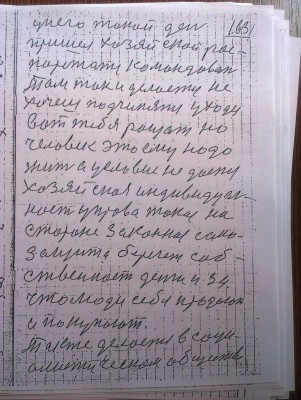 у него такой деп
163
пришел хозяйской рас-
порядиту командовал
Там так и делаеть не
хочеш подчиняти уходи
Вот тебя рощот но
человек этому надо
жит а условие не дают
хозяйская индивидуал-
ност и права также на
стороне законная само-
защита берегет соб-
ственност денги за
что люди себя продают
и покупают.
Также делаеть в соци-
алистическом обществе